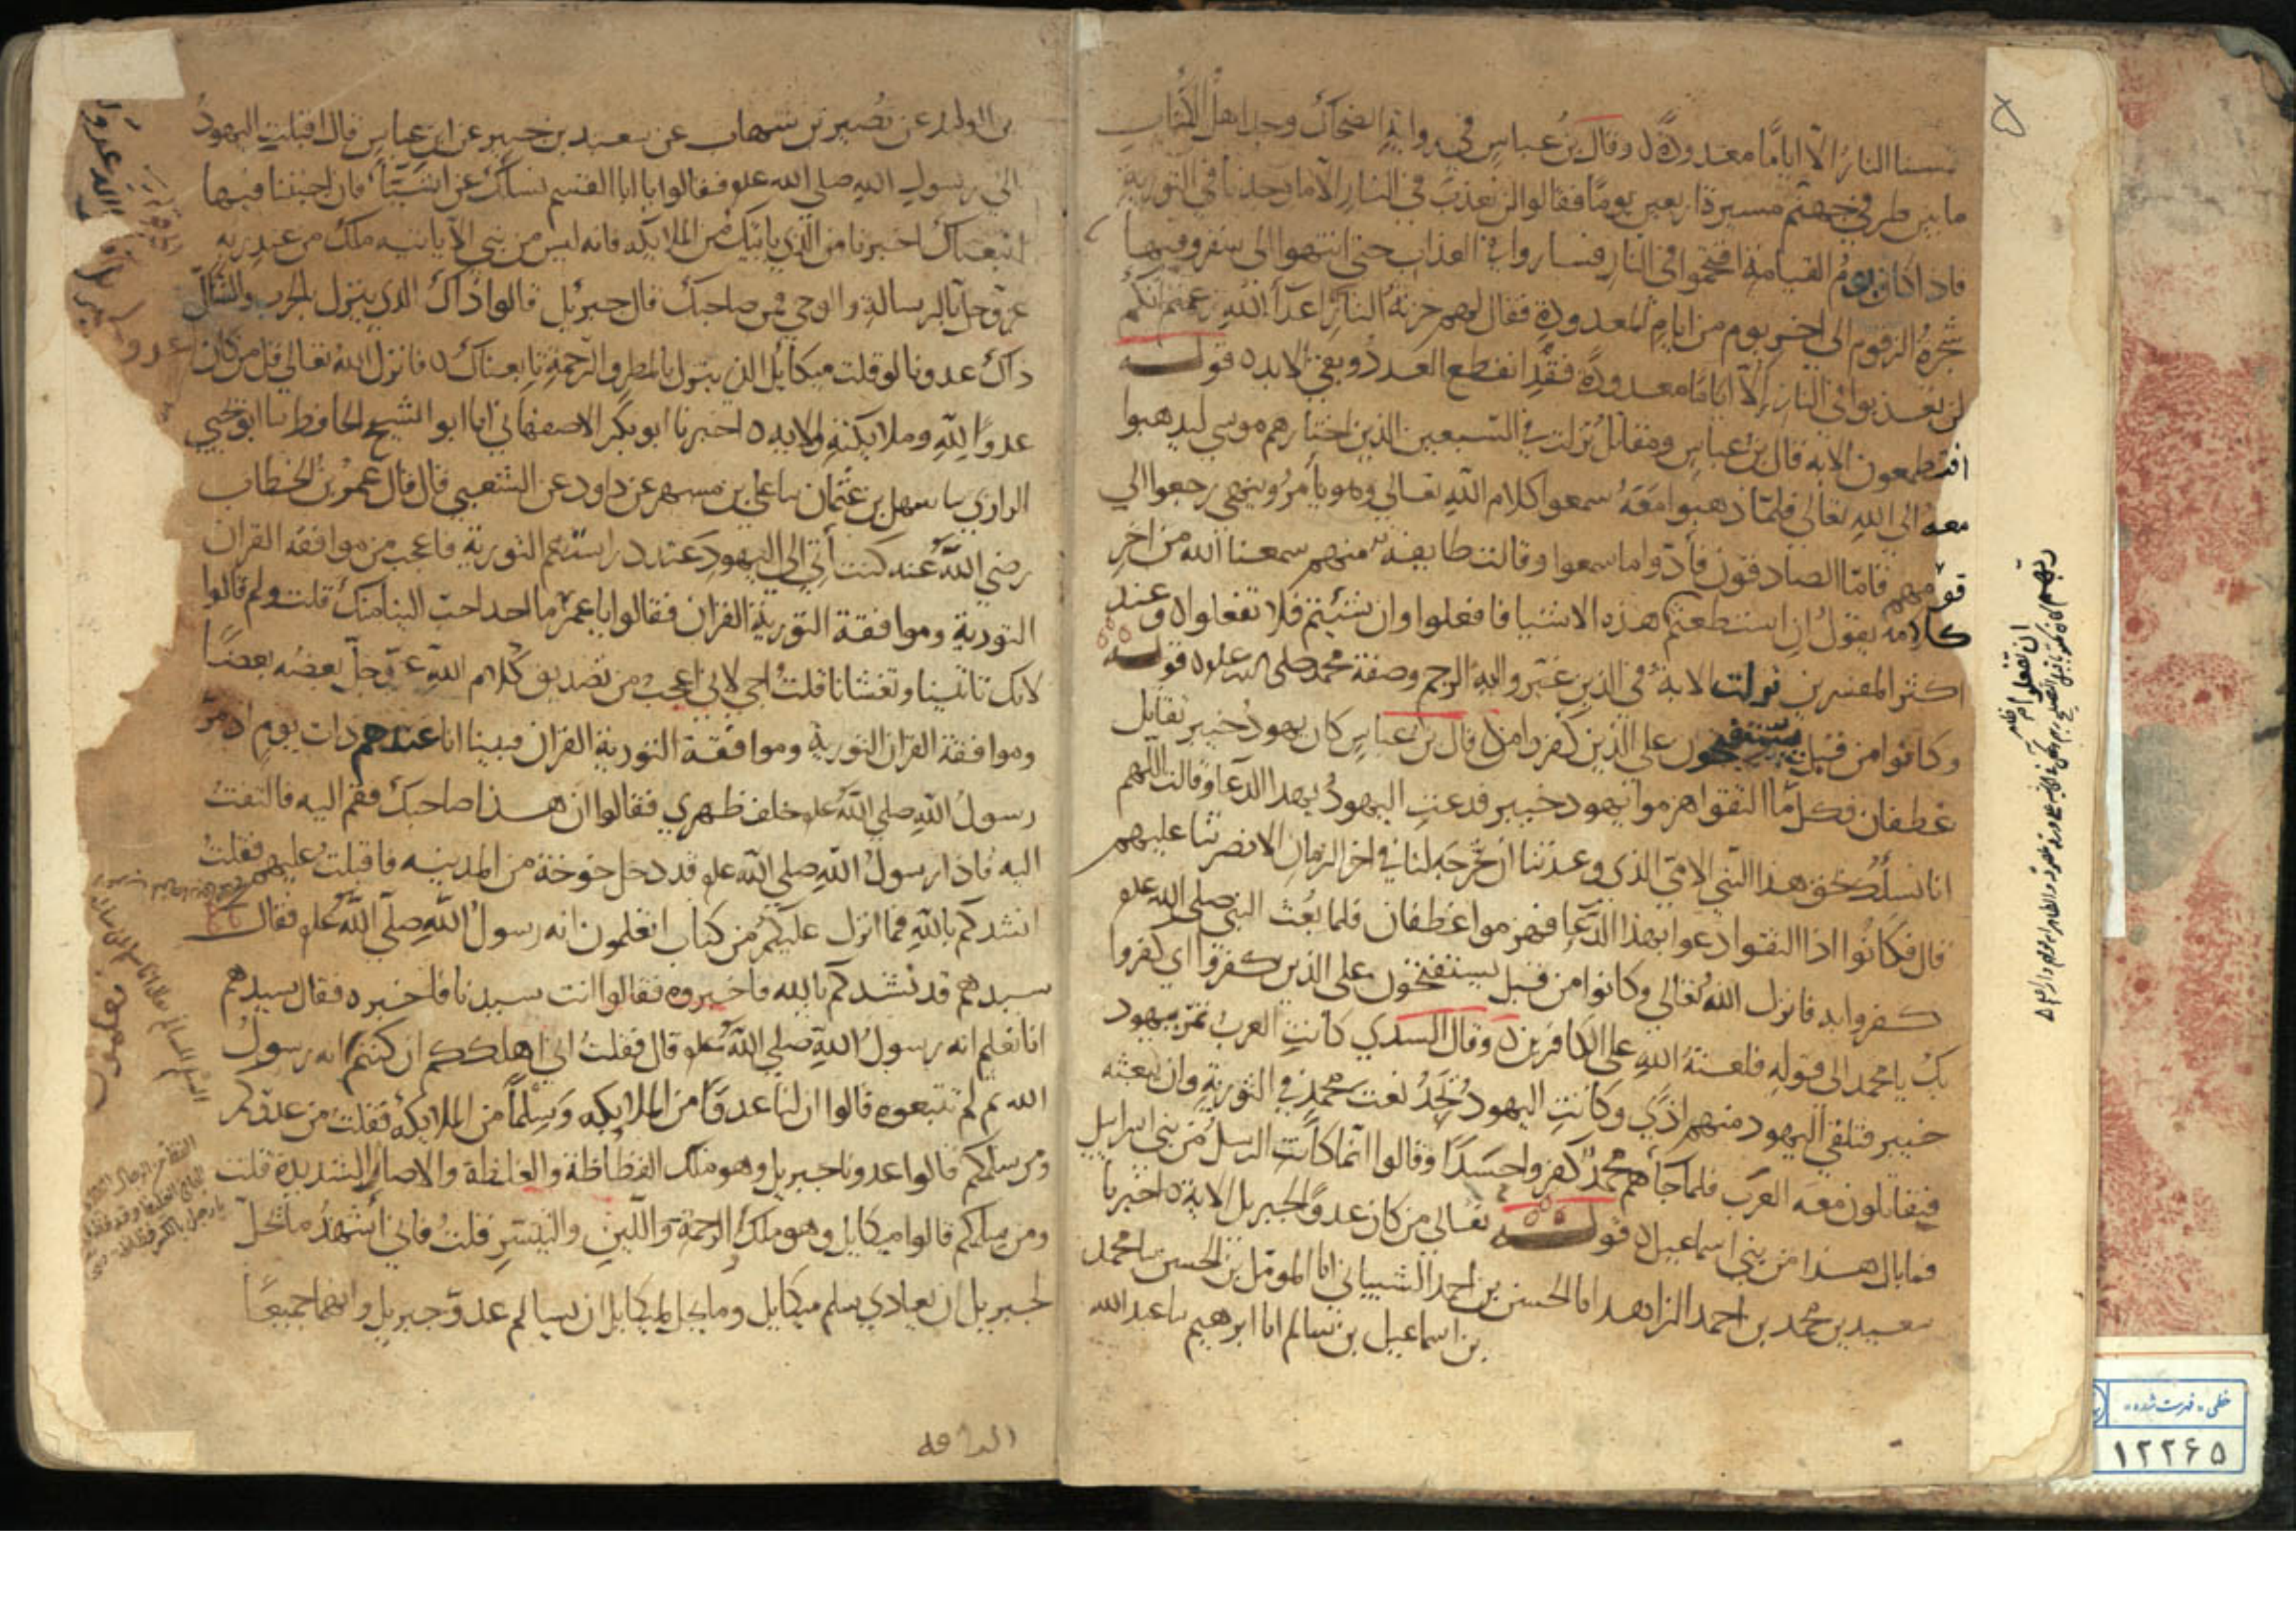 تمسنا النار الا اياما معدودة ه وقال بن عباس في رواية الضحاك وجد اهل الكتاب
ما بين طرفي جهنم مسيرة اربعين يوما فقالوا لن نعذب في النار الا ما وجدنا في التورية
فاذا كان يوم القيامة اقتحموا في النار فساروا في العذاب حتى انتهوا الى سقر وفيها
شجرة الزقوم الى اخر يوم من ايام المعدودة فقال لهم خزنة النار اعدآ الله زعمتم انكم
لن تعذبوا في النار الا اياما معدودة فقد انقطع العدد وبقي الابد ه قوله
افتطمعون الاية قال بن عباس ومقاتل نزلت في السبعين الذين اختارهم موسى ليذهبوا
معه الى الله تعالى فلما ذهبوا معه سمعوا كلام الله تعالى وهو يأمر وينهى رجعوا الي
قومهم فاما الصادقون فأدوا ما سمعوا وقالت طايفة منهم سمعنا الله من اخر
كلامه يقول ان استطعتم هذه الاشيا فافعلوا وان شئتم فلا تفعلوا ه وعند
اكثر المفسرين نزلت الاية في الذين غيروا اية الرجم وصفة محمد صلى الله عليه ه قوله
وكانوا من قبل يستفتحون على الذين كفروا من ه قال بن عباس كان يهود خيبر تقاتل
غطفان فكلما التقوا هزموا يهود خيبر فدعت اليهود بهذا الدعا وقالت اللهم
انا نسلك بحق هذا النبي الامي الذي وعدتنا ان تخرجه لنا في اخر الزمان الا نصرتنا عليهم
قال فكانوا اذا التقوا دعوا بهذا الدعا فهزموا غطفان فلما بعث النبي صلى الله عليه
كفروا به فانزل الله تعالى وكانوا من قبل يستفتحون على الذين كفروا اي كفروا
بك يا محمد الى قوله فلعنة الله على الكافرين ه وقال السدي كانت العرب تمر بيهود
خيبر فتلقى اليهود منهم اذى وكانت اليهود تجد نعت محمد في التورية وان يبعثه
فيقاتلون معه العرب فلما جأهم محمد كفروا حسدا وقالوا انما كانت الرسل من بني اسرايل
فما بال هذا من بني اسماعيل ه قوله تعالى من كان عدوا لجبريل الاية ه اخبرنا
سعيد بن محمد بن احمد الزاهد انا الحسن بن احمد الشيباني انا المومل بن الحسن سا محمد
بن اسماعيل بن سالم انا ابرهيم سا عبد الله
بن الوليد عن نصير بن شهاب عن سعيد بن جبير عن ابن عباس قال اقبلت اليهود
الى رسول الله صلى الله عليه فقالوا يا ابا القسم نسلك عن اشيآ فان اجبتنا فيها
اتبعناك اخبرنا من الذي ياتيك من الملايكة فانه ليس من نبي الا ياتيه ملك من عند ربه
عز وجل بالرسالة والوحي فمن صاحبك قال جبرئل قالوا ذاك الذي ينزل بالحرب والقتال
ذاك عدونا لو قلت ميكائل الذي ينزل بالمطر والرحمة تابعناك ه فانزل الله تعالى قل من كان
عدوا لله وملايكته الاية ه اخبرنا ابو بكر الاصفهاني انا ابو الشيخ الحافظ نا ابو يحيي
الرازي سا سهل بن عثمان سا علي بن مسهر عن داود عن الشعبي قال قال عمر بن الخطاب
رضي الله عنه كنت أتي الى اليهود عند دراستهم التورية فاعجب من موافقة القران
التورية وموافقة التورية القران فقالوا يا عمر ما احد احب الينا منك قلت ولم قالوا
لانك تاتينا وتغشانا قلت اجي لاني اعجب من تصديق كلام الله عز وجل بعضه بعضا
وموافقة القران التورية وموافقة التورية القران فبينا انا عندهم ذات يوم اذ مر
رسول الله صلى الله عليه خلف ظهري فقالوا ان هذا صاحبك فقم اليه فالتفت
اليه فاذا رسول الله صلى الله عليه قد دخل خوخة من المدينه فاقبلت عليهم فقلت
انشدكم بالله فما انزل عليكم من كتاب اتعلمون انه رسول الله صلى الله عليه فقال
سيدهم قد نشدكم بالله فاخبروه فقالوا انت سيدنا فاخبره فقال سيدهم
انا نعلم انه رسول الله صلى الله عليه قال فقلت اني اهلككم ان كنتم انه رسول
الله ثم لم تتبعوه قالوا ان لنا عدوا من الملايكه وسلما من الملايكة فقلت من عدوكم
ومن سلمكم قالوا عدونا جبريل وهو ملك الفظاظة والغلظة والاصار الشديدة قلت
ومن سلمكم قالوا ميكايل وهو ملك الرحمة واللين والتيسر قلت فاني اشهد ما يحل
لجبريل ان يعادي سلم ميكايل وما يحل لميكايل ان يسالم عدو جبريل وانهما جميعا
خطی «فهرست شده»
۱۲۲۶۵